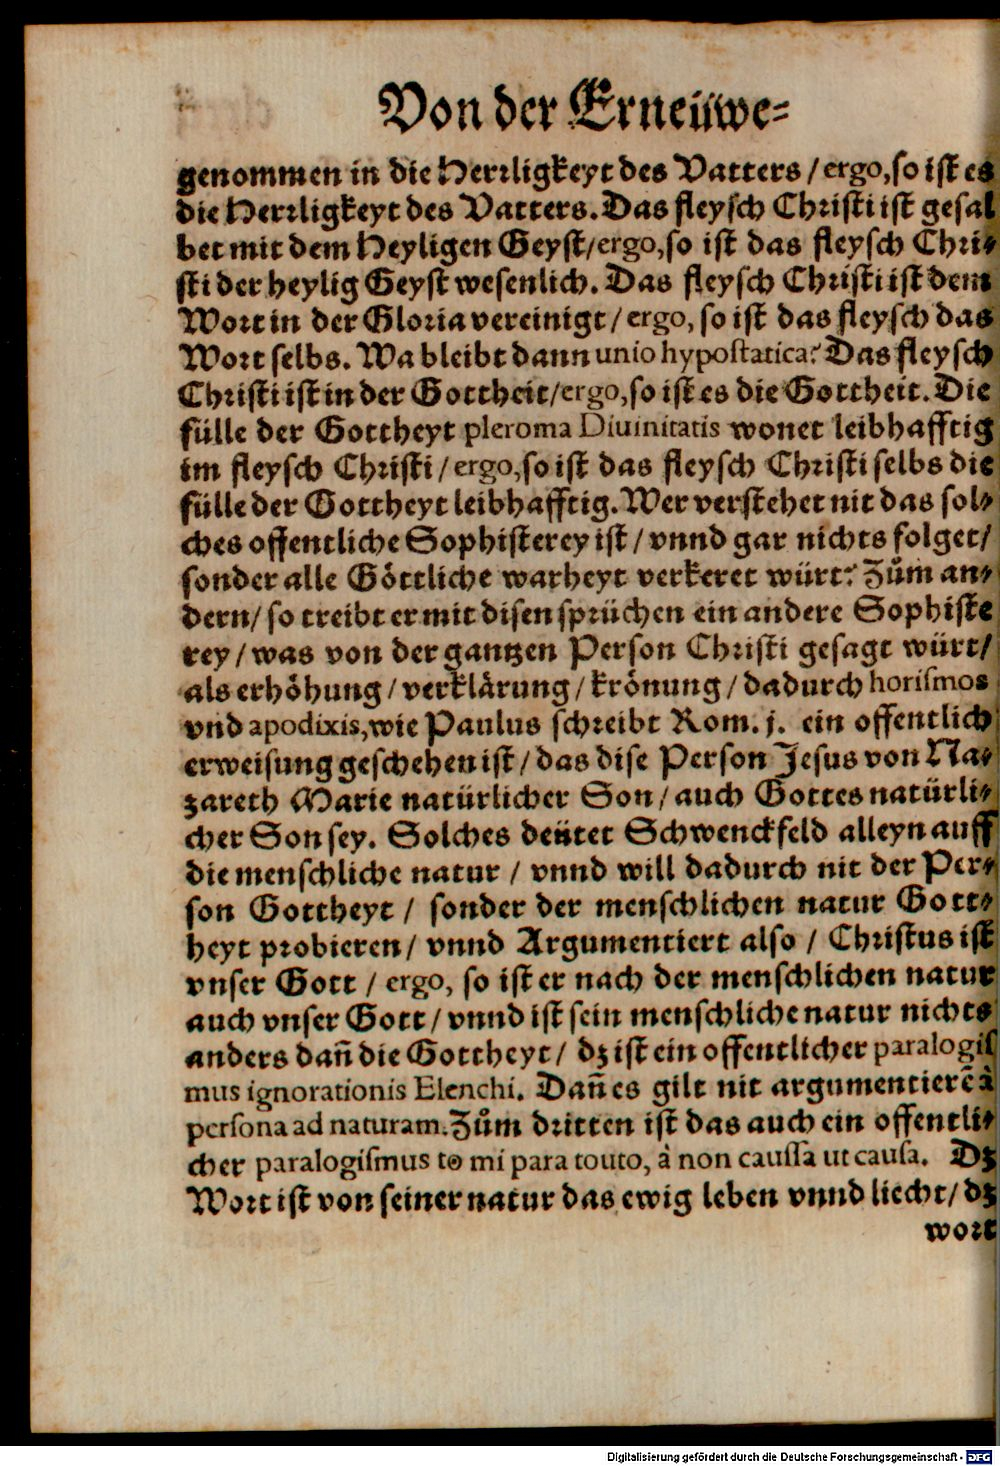 Von der Erneüwe⸗
genommen in die Herrligkeyt des Vatters / ergo, so ist es
die Herrligkeyt des Vatters. Das fleysch Christi ist gesal
bet mit dem Heyligen Geyst/ ergo, so ist das fleysch Chri⸗
sti der heylig Geyst wesenlich. Das fleysch Christi ist dem
Wort in der Gloria vereinigt / ergo, so ist das fleysch das
Wort selbs. Wa bleibt dann unio hypostatica? Das fleysch
Christi ist in der Gottheit/ ergo, so ist es die Gottheit. Die
fülle der Gottheyt pleroma Diuinitatis wonet leibhafftig
im fleysch Christi / ergo, so ist das fleysch Christi selbs die
fülle der Gottheyt leibhafftig. Wer verstehet nit das sol⸗
ches offentliche Sophisterey ist / vnnd gar nichts folget/
sonder alle Göttliche warheyt verkeret würt? Zům an⸗
dern/ so treibt er mit disen sprüchen ein andere Sophiste
rey / was von der gantzen Person Christi gesagt würt/
als erhöhung / verklärung / krönung / dadurch horismos
vnd apodixis, wie Paulus schreibt Rom. j. ein offentlich
erweisung geschehen ist / das dise Person Jesus von Na⸗
zareth Marie natürlicher Son / auch Gottes natürli⸗
cher Son sey. Solches deütet Schwenckfeld alleyn auff
die menschliche natur / vnnd will dadurch nit der Per⸗
son Gottheyt / sonder der menschlichen natur Gott⸗
heyt probieren/ vnnd Argumentiert also / Christus ist
vnser Gott / ergo, so ist er nach der menschlichen natur
auch vnser Gott / vnnd ist sein menschliche natur nichts
anders dañ die Gottheyt / dz ist ein offentlicher paralogis
mus ignorationis Elenchi. Dañ es gilt nit argumentierē à
persona ad naturam. Zům dritten ist das auch ein offentli⸗
cher paralogismus to mi para touto, à non caussa ut causa. Dz
Wort ist von seiner natur das ewig leben vnnd liecht / dz
wort
Digitalisierung gefördert durch die Deutsche Forschungsgemeinschaft - DFG